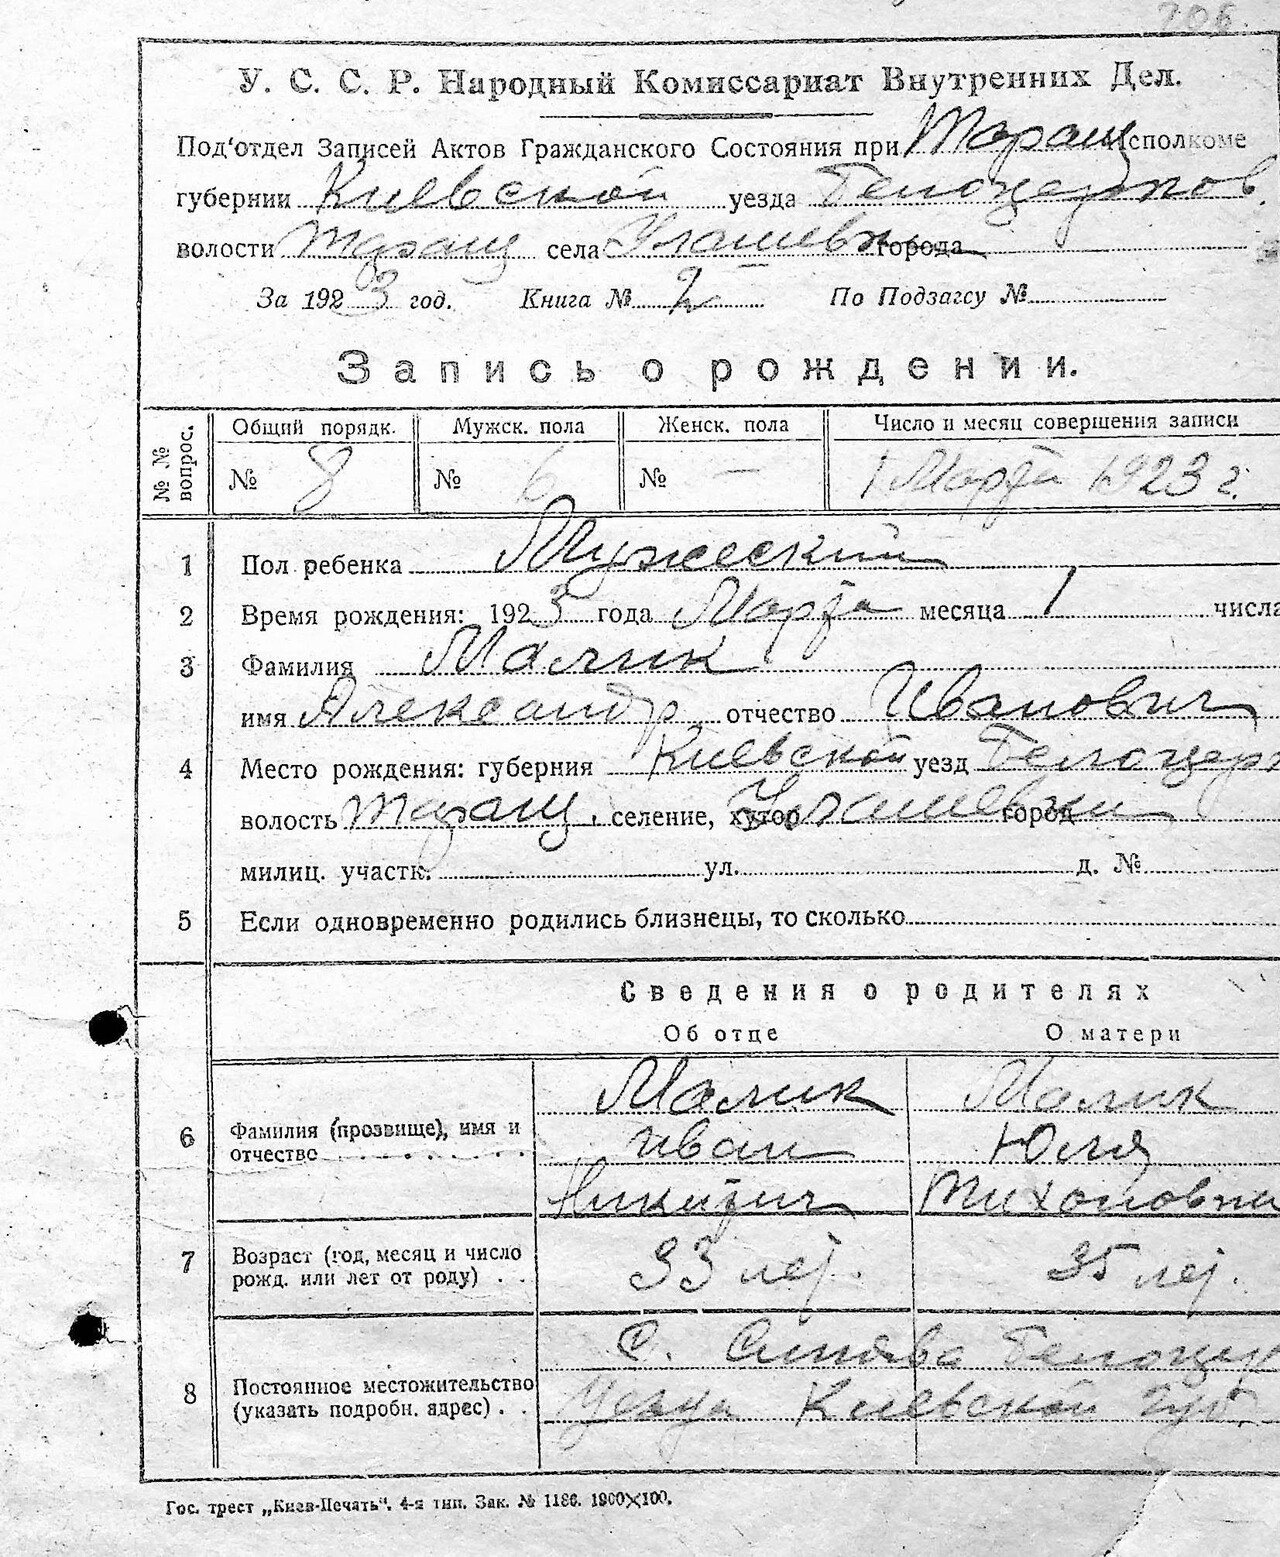 206.
У. С. С. Р. Народный Комиссариат Внутренних Дел.
Под'отдел Записей Актов Гражданского Состояния при Таращ Исполкоме
губернии Киевской уезда Белоцерков.
волости Таращ села Улашевк города
За 1923 год. Книга № 2 По Подзагсу №
Запись о рождении.
№ № вопрос. Общий порядк. Мужск. пола Женск. пола Число и месяц совершения записи
№ 8 № 6 № — 1 Марта 1923 г.
1 Пол ребенка Мужеский
2 Время рождения: 1923 года Марта месяца 1 числа
3 Фамилия Малик
имя Александр отчество Иванович
4 Место рождения: губерния Киевской уезд Белоцерк
волость Таращ. селение, хутор Улашевки город
милиц. участк. ул. д. №
5 Если одновременно родились близнецы, то сколько
Сведения о родителях
Об отце О матери
Малик Малик
6 Фамилия (прозвище), имя и отчество Иван Юля
Никитич Тихоновна
7 Возраст (год, месяц и число рожд. или лет от роду) . . 33 лет. 35 лет.
С. Синява Белоцер
8 Постоянное местожительство (указать подробн. адрес) . . Уезда Киевской Губ.
Гос. трест „Киев-Печать“. 4-я тип. Зак. № 1186. 1900×100.